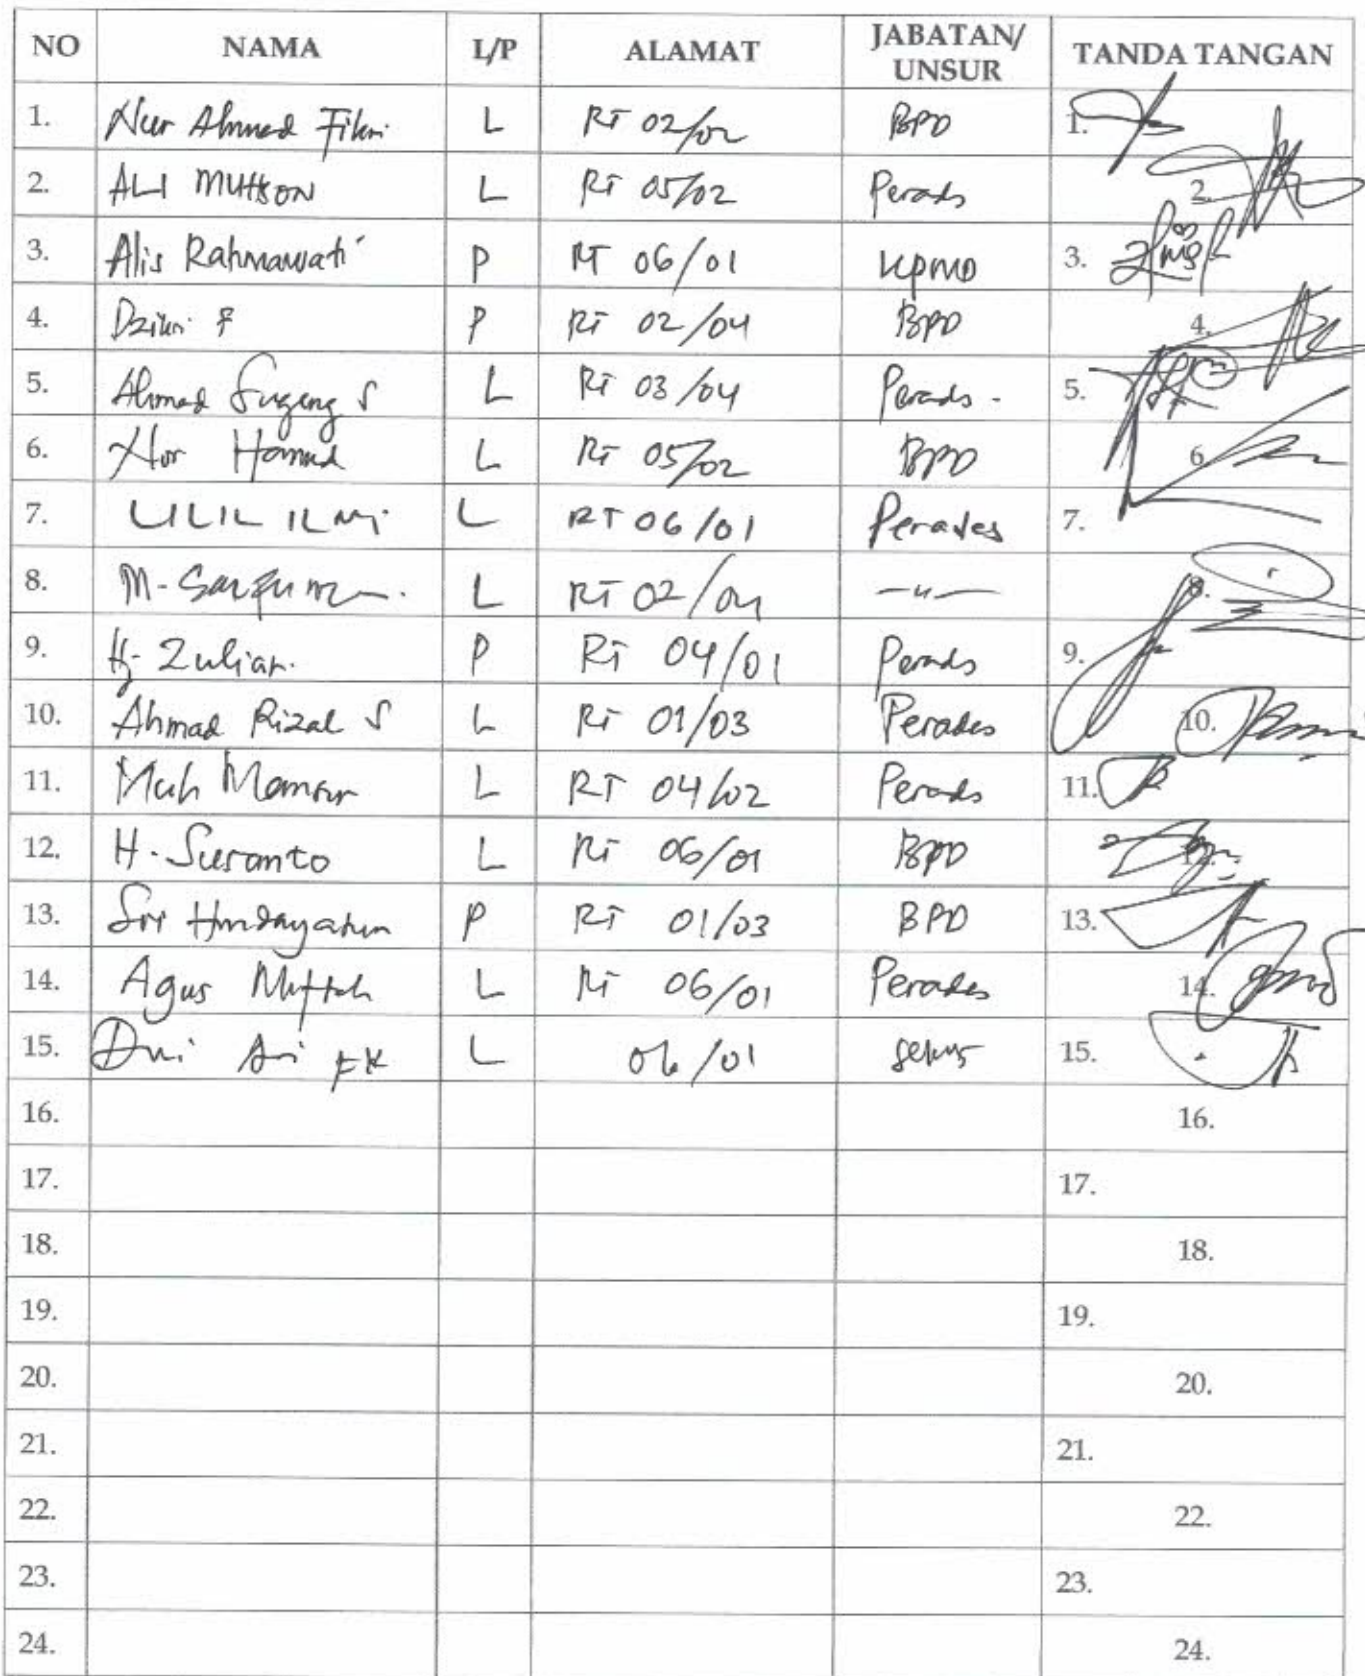 NO NAMA L/P ALAMAT JABATAN/ UNSUR TANDA TANGAN
1. Nur Ahmad Fikri L RT 02/02 BPD 1.
2. ALI MUHSON L RT 05/02 Perads 2.
3. Alis Rahmawati P RT 06/01 KPMD 3.
4. Dzikri F P RT 02/04 BPD 4.
5. Ahmad Sugeng S L RT 03/04 Perads - 5.
6. Nor Hamid L RT 05/02 BPD 6
7. ULIL ILMI L RT 06/01 Perades 7.
8. M. L RT 02/04 —"— 8.
9. Hj. Zulian. P RT 04/01 Perads 9.
10. Ahmad Rizal S L RT 01/03 Perades 10.
11. Muh Mansur L RT 04/02 Perads 11.
12. H. Suranto L RT 06/01 BPD 12.
13. Sri P RT 01/03 BPD 13.
14. Agus Miftah L RT 06/01 Perades 14.
15. Dwi Ari FK L 06/01 15.
16. 16.
17. 17.
18. 18.
19. 19.
20. 20.
21. 21.
22. 22.
23. 23.
24. 24.